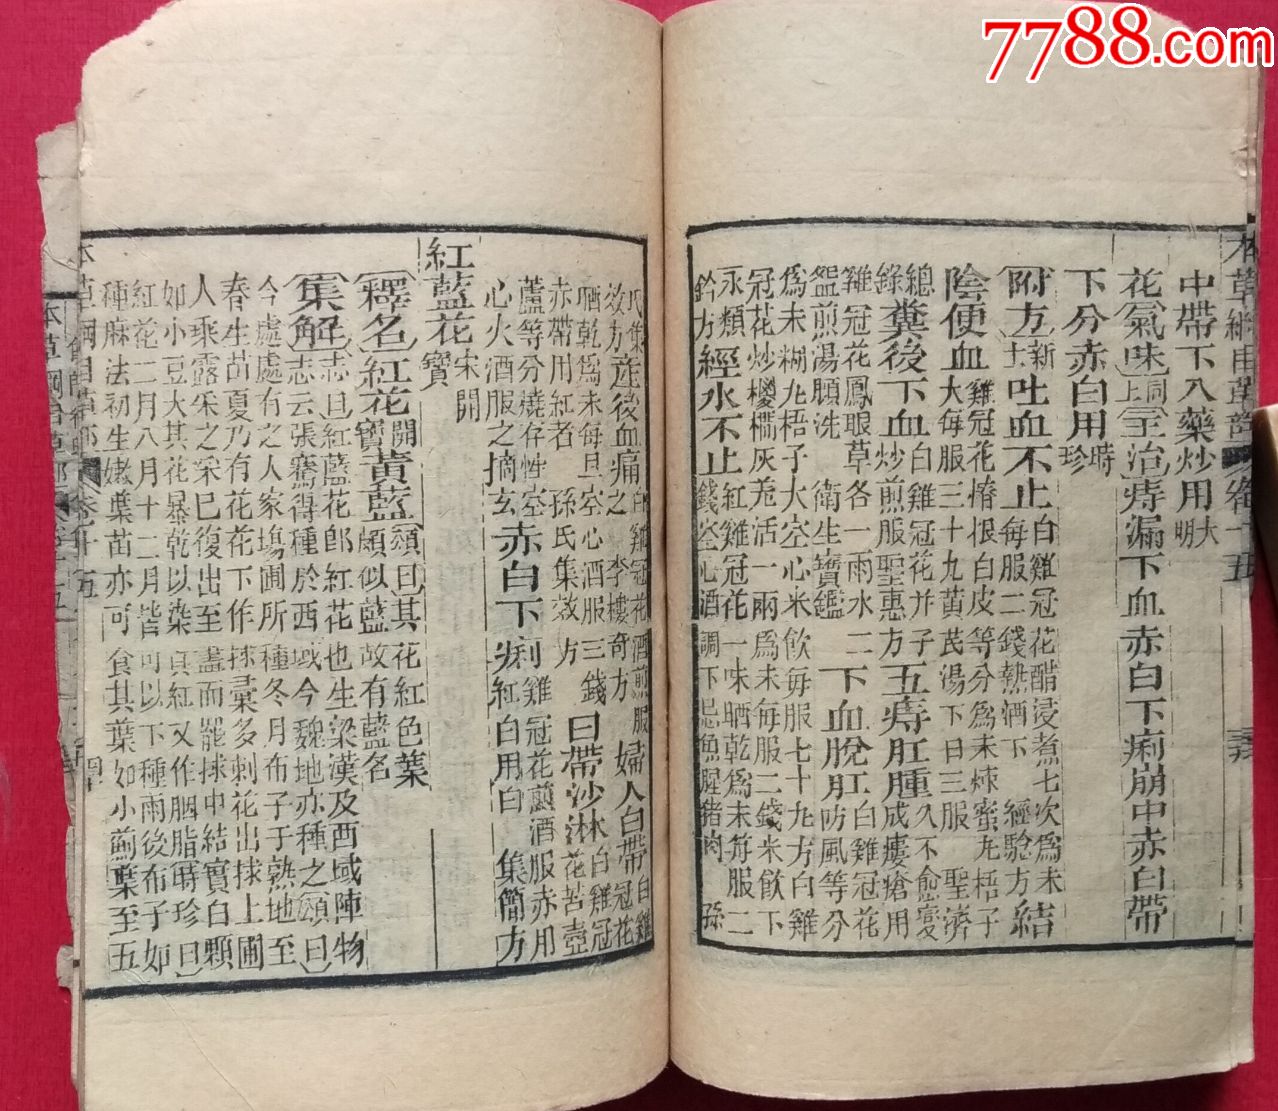 本草綱目草部 卷十五
中帶下入藥炒用大明
花氣味同上主治痔漏下血赤白下痢崩中赤白帶
下分赤白用時珍
附方新十一吐血不止白雞冠花醋浸煮七次為末每服二錢熱酒下 經驗方 結
陰便血雞冠花椿根白皮等分為末煉蜜丸梧子大每服三十九黃芪湯下日三服 聖濟
總錄糞後下血白雞冠花并子炒煎服聖惠方五痔肛腫久不愈變成瘻瘡用
雞冠花鳳眼草各一兩水二盌煎湯頻洗 衛生寶鑑 下血脫肛白雞冠花防風等分
為末糊丸梧子大空心米飲每服七十九方白雞冠花炒椶櫚灰羌活一兩為末每服二錢米飲下
永類鈐方經水不止紅雞冠花一味晒乾為末每服二錢空心酒調下忌魚腥豬肉 孫
氏集效方產後血痛白雞冠花酒煎服之 李樓奇方 婦人白帶白雞冠花
晒乾為末每旦空心酒服三錢赤帶用紅者 孫氏集效方 白帶沙淋白雞冠花苦壺
蘆等分燒存性空心火酒服之摘玄赤白下痢雞冠花煎酒服赤用紅白用白 集簡方
紅藍花宋開寶
釋名紅花開寶黃藍頌曰其花紅色葉頗似藍故有藍名
集解志曰紅藍花即紅花也生梁漢及西域博物志云張騫得種於西域今魏地亦種之頌曰
今處處有之人家場圃所種冬月布子于熟地至春生苗夏乃有花花下作梂彙多刺花出梂上圃
人乘露采之采已復出至盡而罷梂中結實白顆如小豆大其花暴乾以染真紅又作胭脂時珍曰
紅花二月八月十二月皆可以下種雨後布子如種麻法初生嫩葉苗亦可食其葉如小薊葉至五
本草綱目草部 卷十五
7788.com